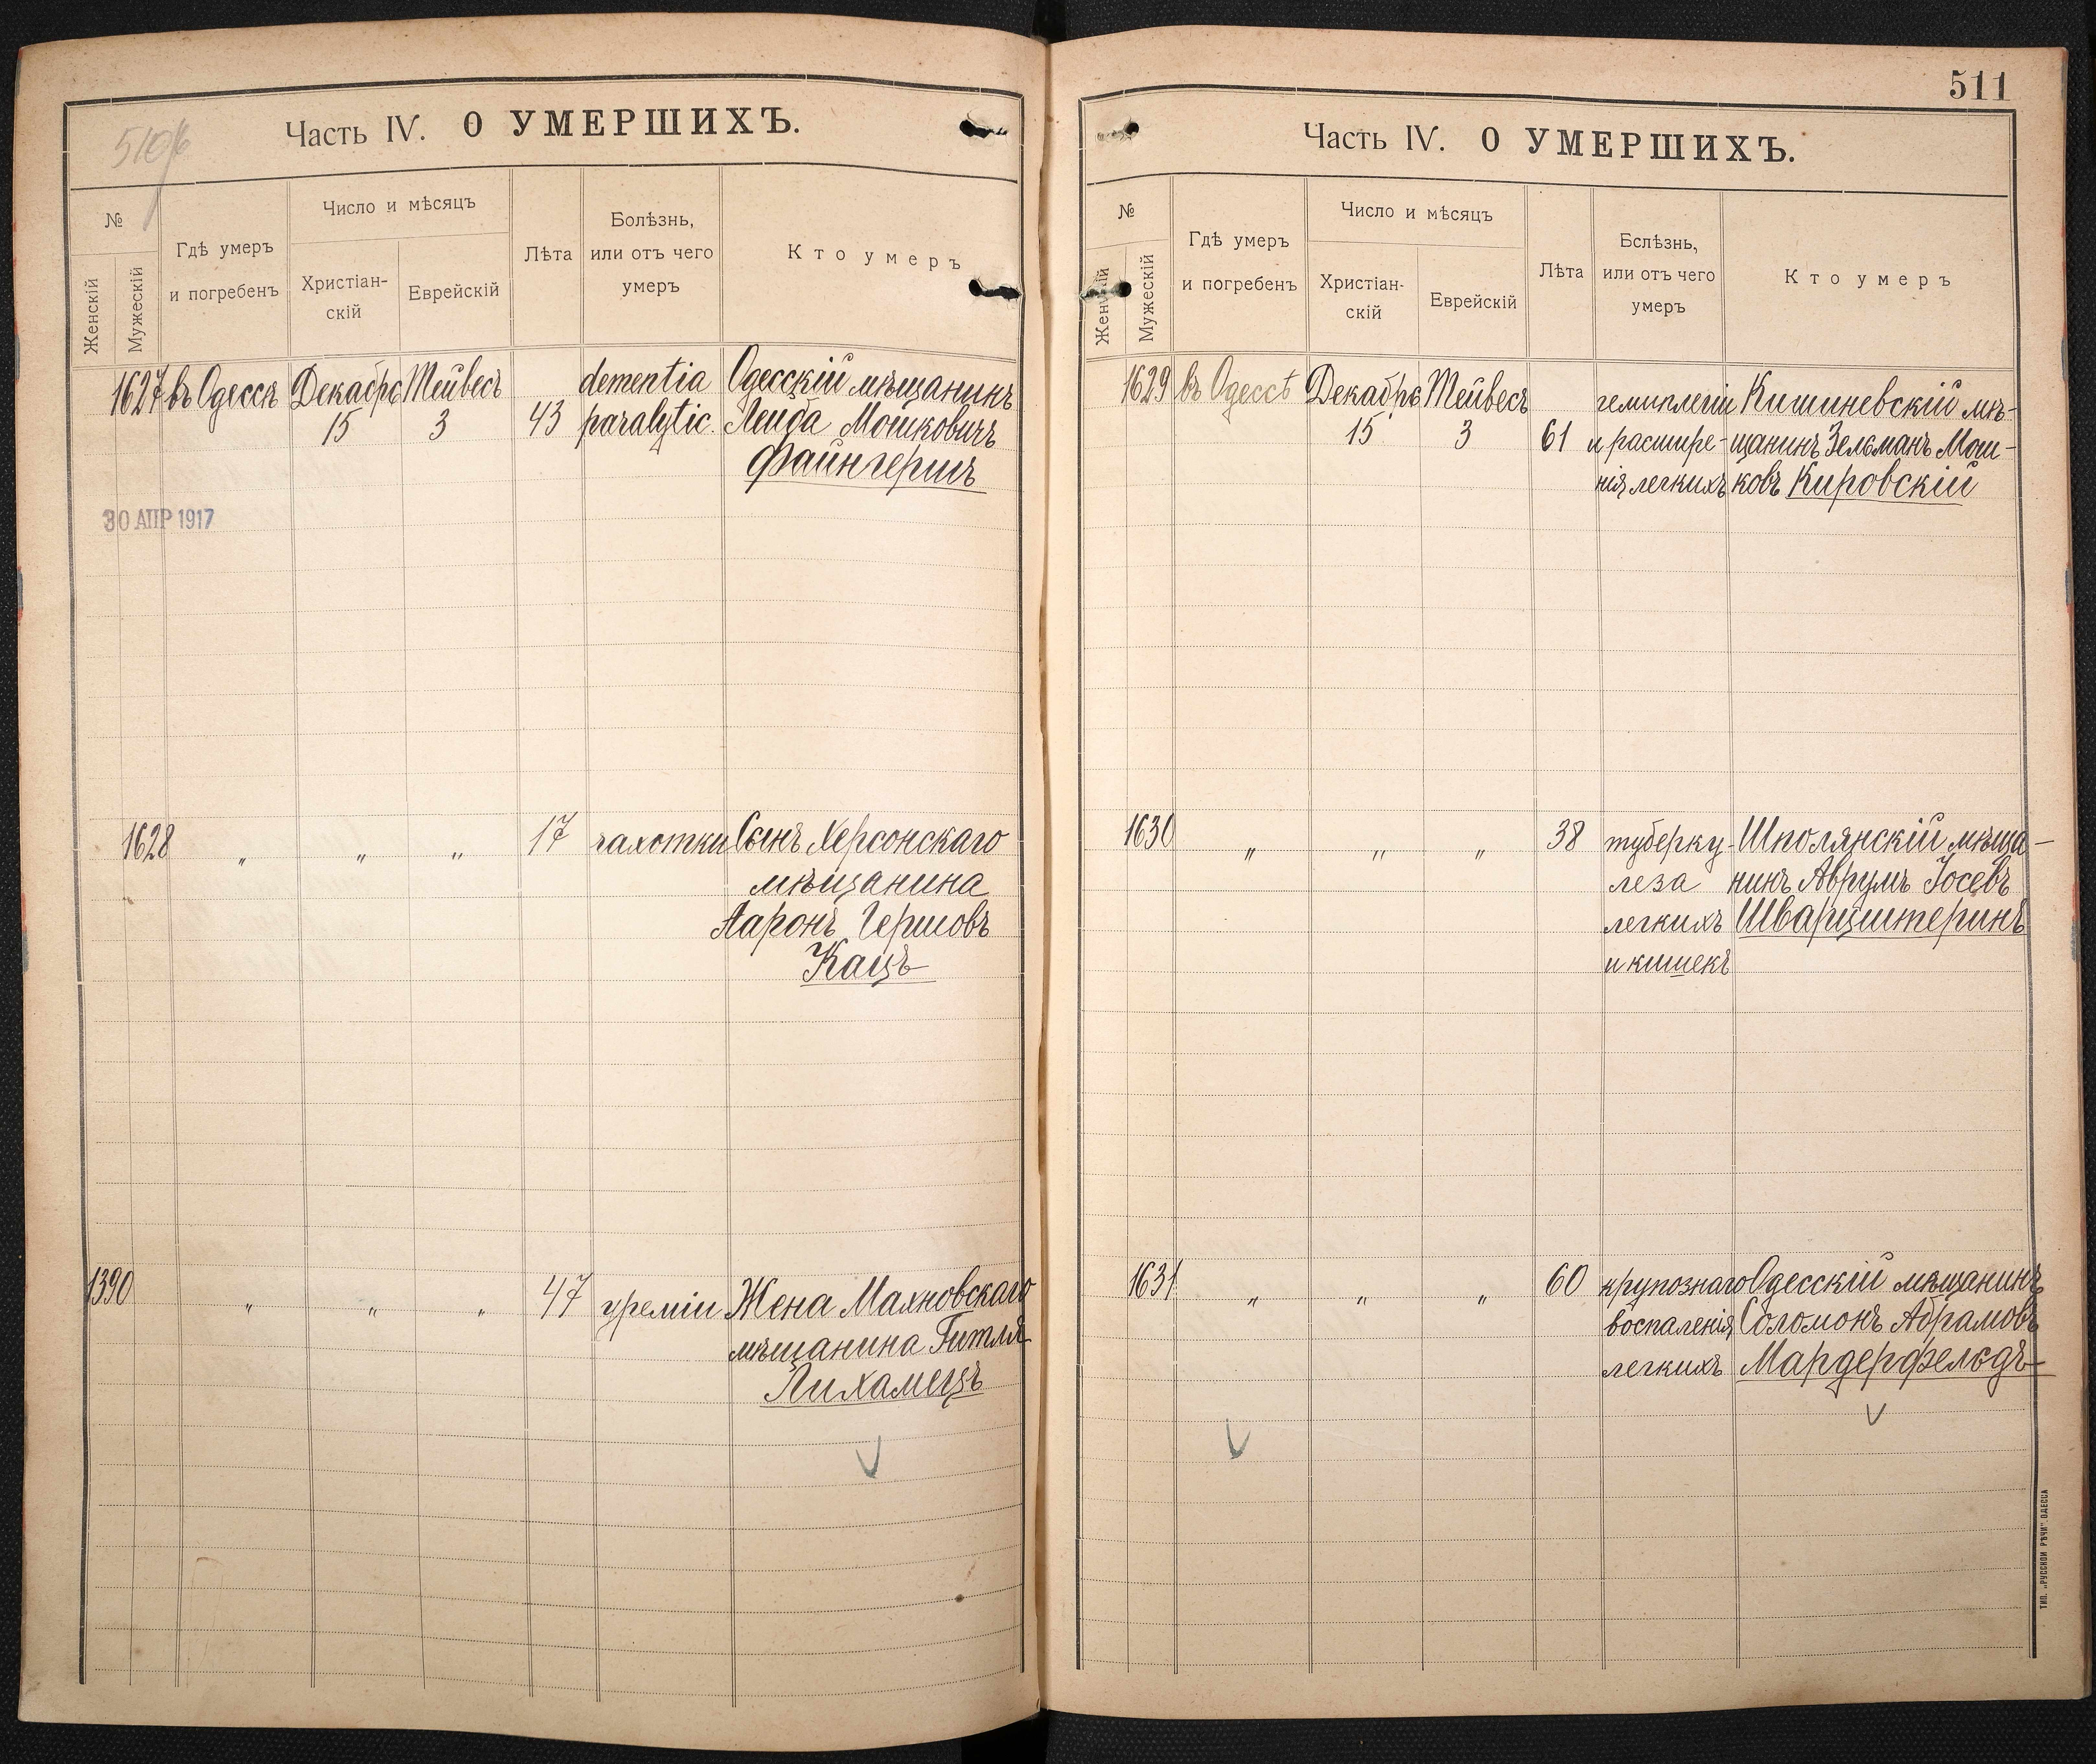 510/б
Часть IV. О УМЕРШИХЪ.
№
Женскій
Мужескій
Гдѣ умеръ
и погребенъ
Число и мѣсяцъ
Христіан-
скій
Еврейскій
Лѣта
Болѣзнь,
или отъ чего
умеръ
Кто умеръ
1627 въ Одессѣ Декабрь Тейвесъ dementia Одесскій мѣщанинъ
15 3 43 paralytic. Лейба Мошковичъ
Файнгершъ
30 АПР 1917
1628 " " " 17 чахотки Сынъ Херсонскаго
мѣщанина
Ааронъ Гершовъ
Кацъ
1390 " " " 47 уреміи Жена Махновскаго
мѣщанина Гитля
Лихамецъ
511
Часть IV. О УМЕРШИХЪ.
№
Женскій
Мужескій
Гдѣ умеръ
и погребенъ
Число и мѣсяцъ
Христіан-
скій
Еврейскій
Лѣта
Бслѣзнь,
или отъ чего
умеръ
Кто умеръ
1629 въ Одессѣ Декабрь Тейвесъ гемиплегіи Кишиневскій мѣ-
15 3 61 и расшире- щанинъ Зельманъ Мош-
нія легкихъ ковъ Кировскій
1630 " " " 38 туберку- Шполянскій мѣща-
леза нинъ Аврумъ Іосевъ
легкихъ Шварцштеринъ
и кишекъ
1631 " " " 60 крупознаго Одесскій мѣщанинъ
воспаленія Соломонъ Абрамовъ
легкихъ Мардерфельдъ
ТИП. „РУССКОЙ РѢЧИ" ОДЕССА